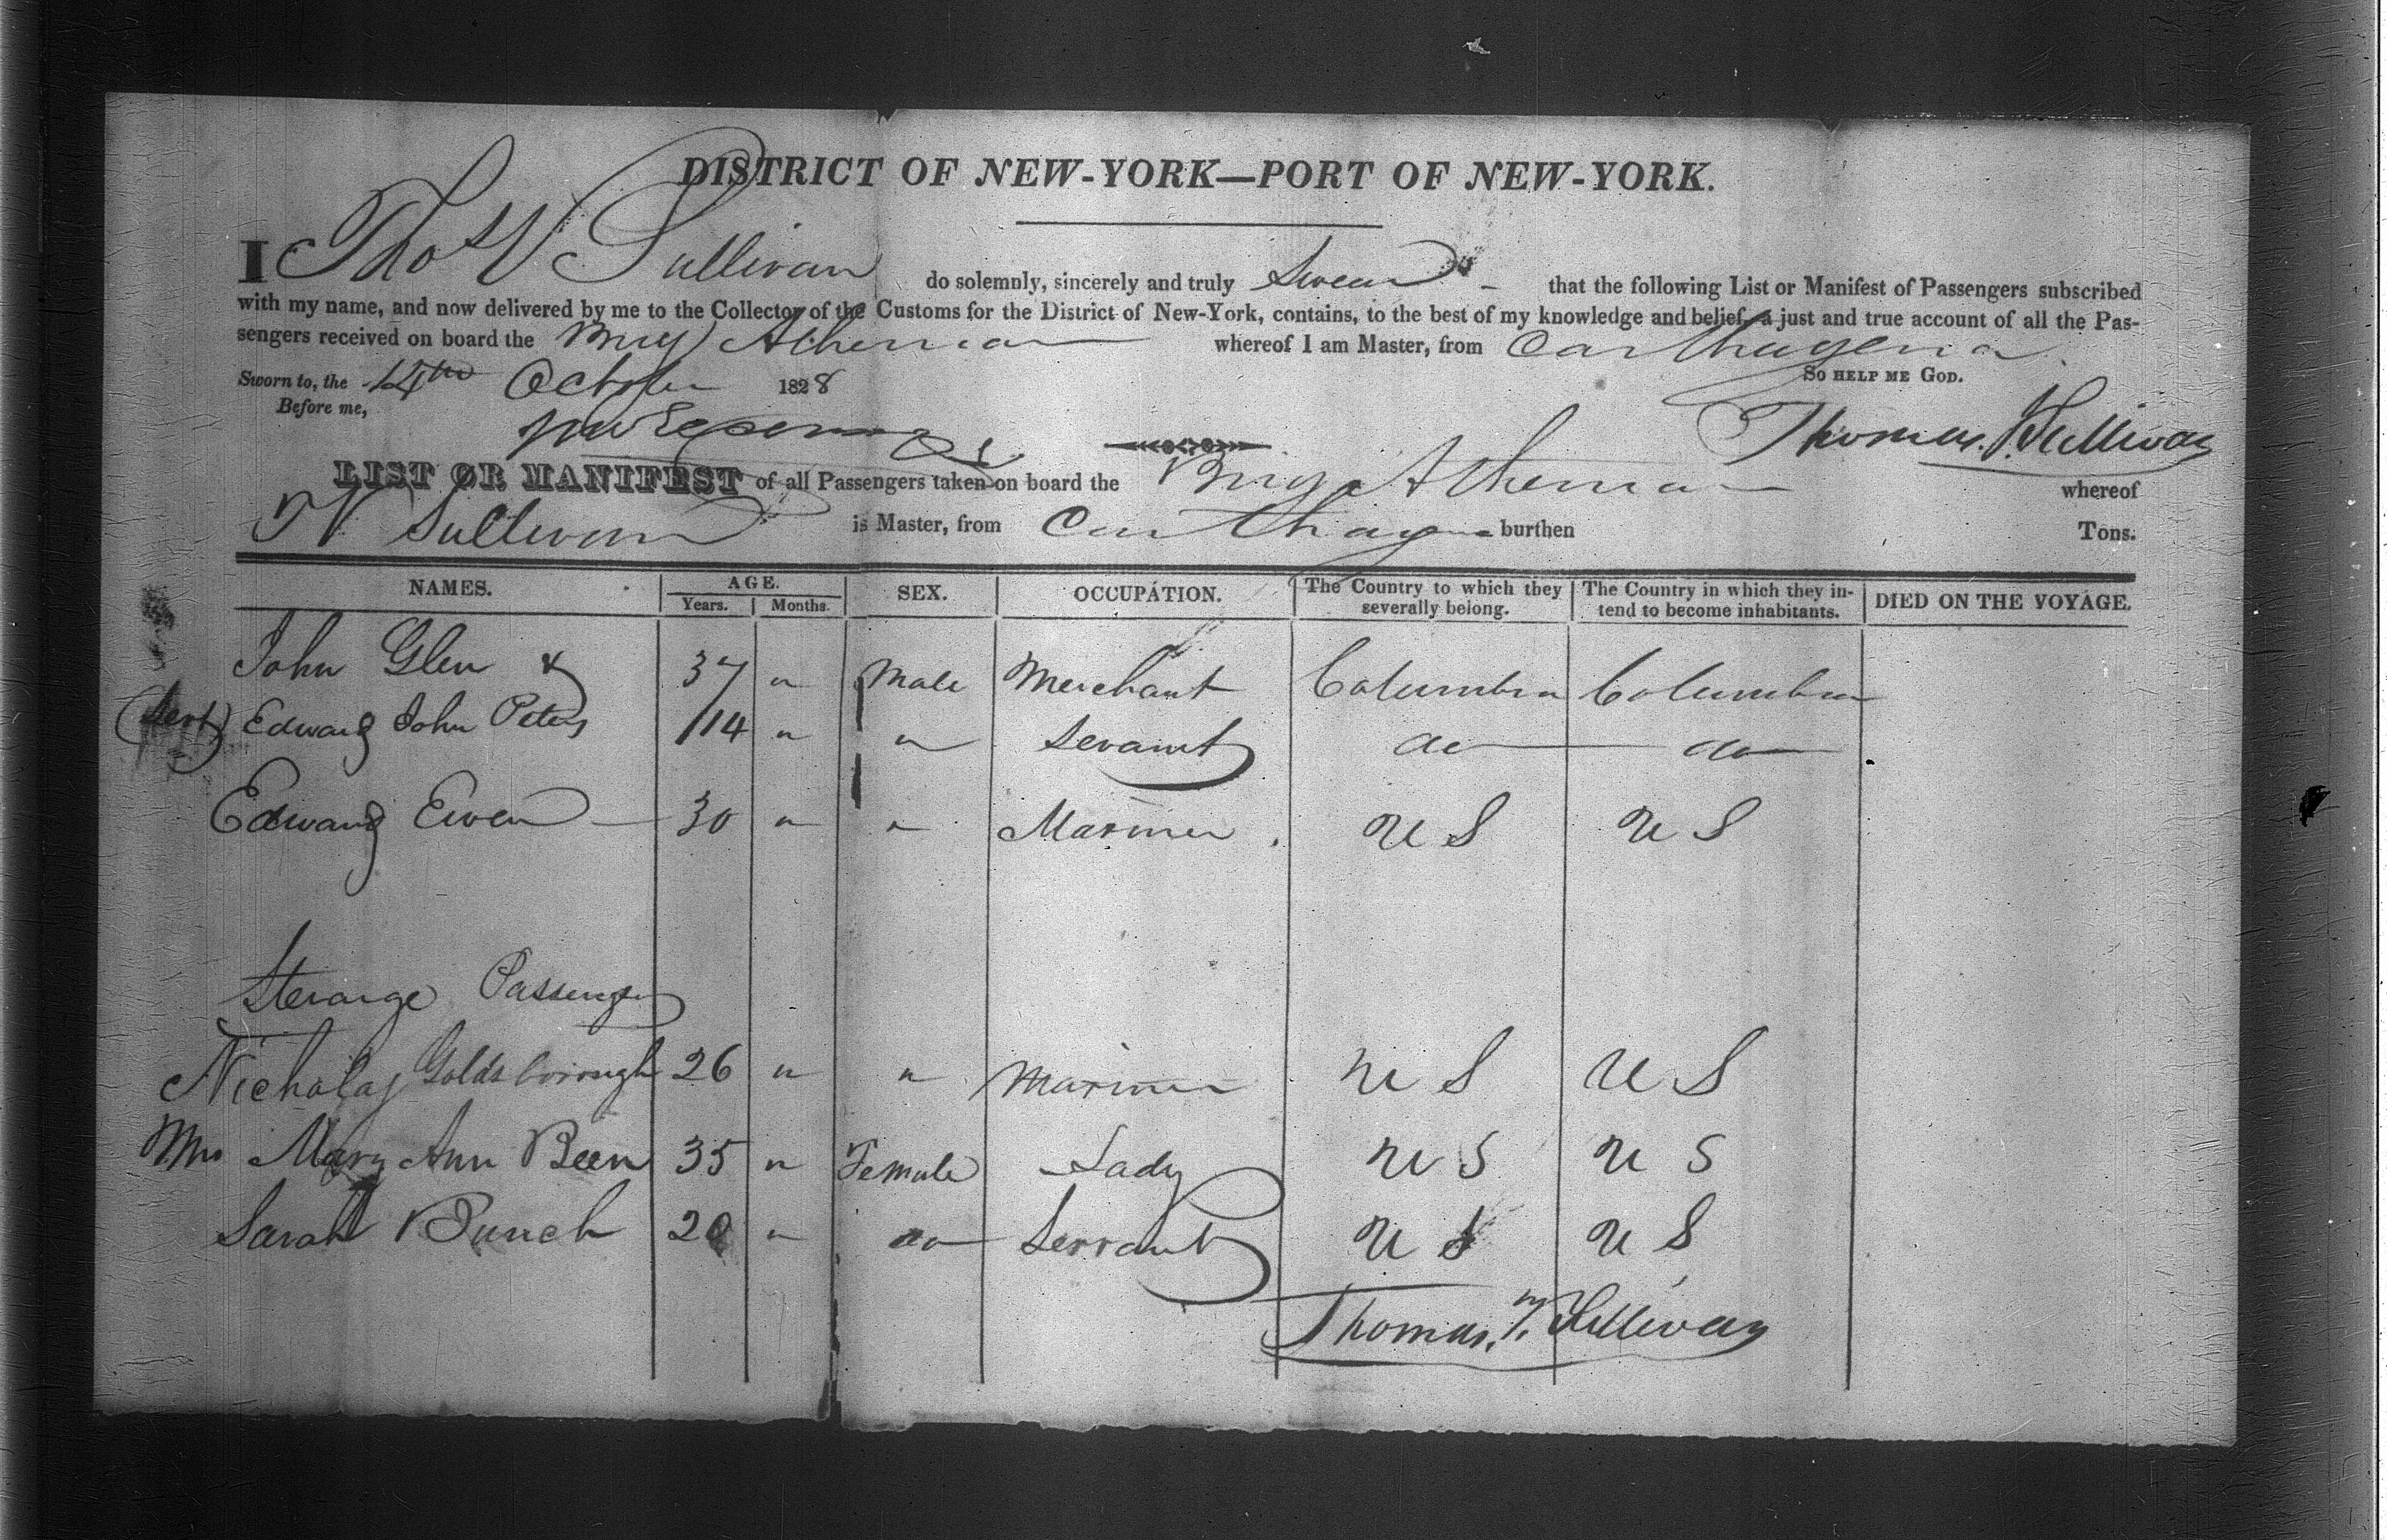 DISTRICT OF NEW-YORK—PORT OF NEW-YORK.
I Thos V Sullivan do solemnly, sincerely and truly Swear - that the following List or Manifest of Passengers subscribed
with my name, and now delivered by me to the Collector of the Customs for the District of New-York, contains, to the best of my knowledge and belief, a just and true account of all the Pas-
sengers received on board the Brig Athenian whereof I am Master, from Carthagena
Sworn to, the 14th October 1828 SO HELP ME GOD.
Before me,
Thomas V. Sullivan
LIST OR MANIFEST of all Passengers taken on board the Brig Athenian whereof
T V Sullivan is Master, from Carthagena burthen Tons.
NAMES. AGE. Years. Months. SEX. OCCUPATION. The Country to which they severally belong. The Country in which they in-tend to become inhabitants. DIED ON THE VOYAGE.
John Glen & 37 " Male Merchant Columbia Columbia
(Sert) Edward John Peters 14 " " Sevant do do
Edward Ewen 30 " " Mariner U S U S
Sterarge Passenger
Nicholas Goldsborough 26 " " Mariner U S U S
Mrs Mary Ann Been 35 " Female Lady U S U S
Sarah Bunch 20 " do Servant U S U S
Thomas V. Sullivan